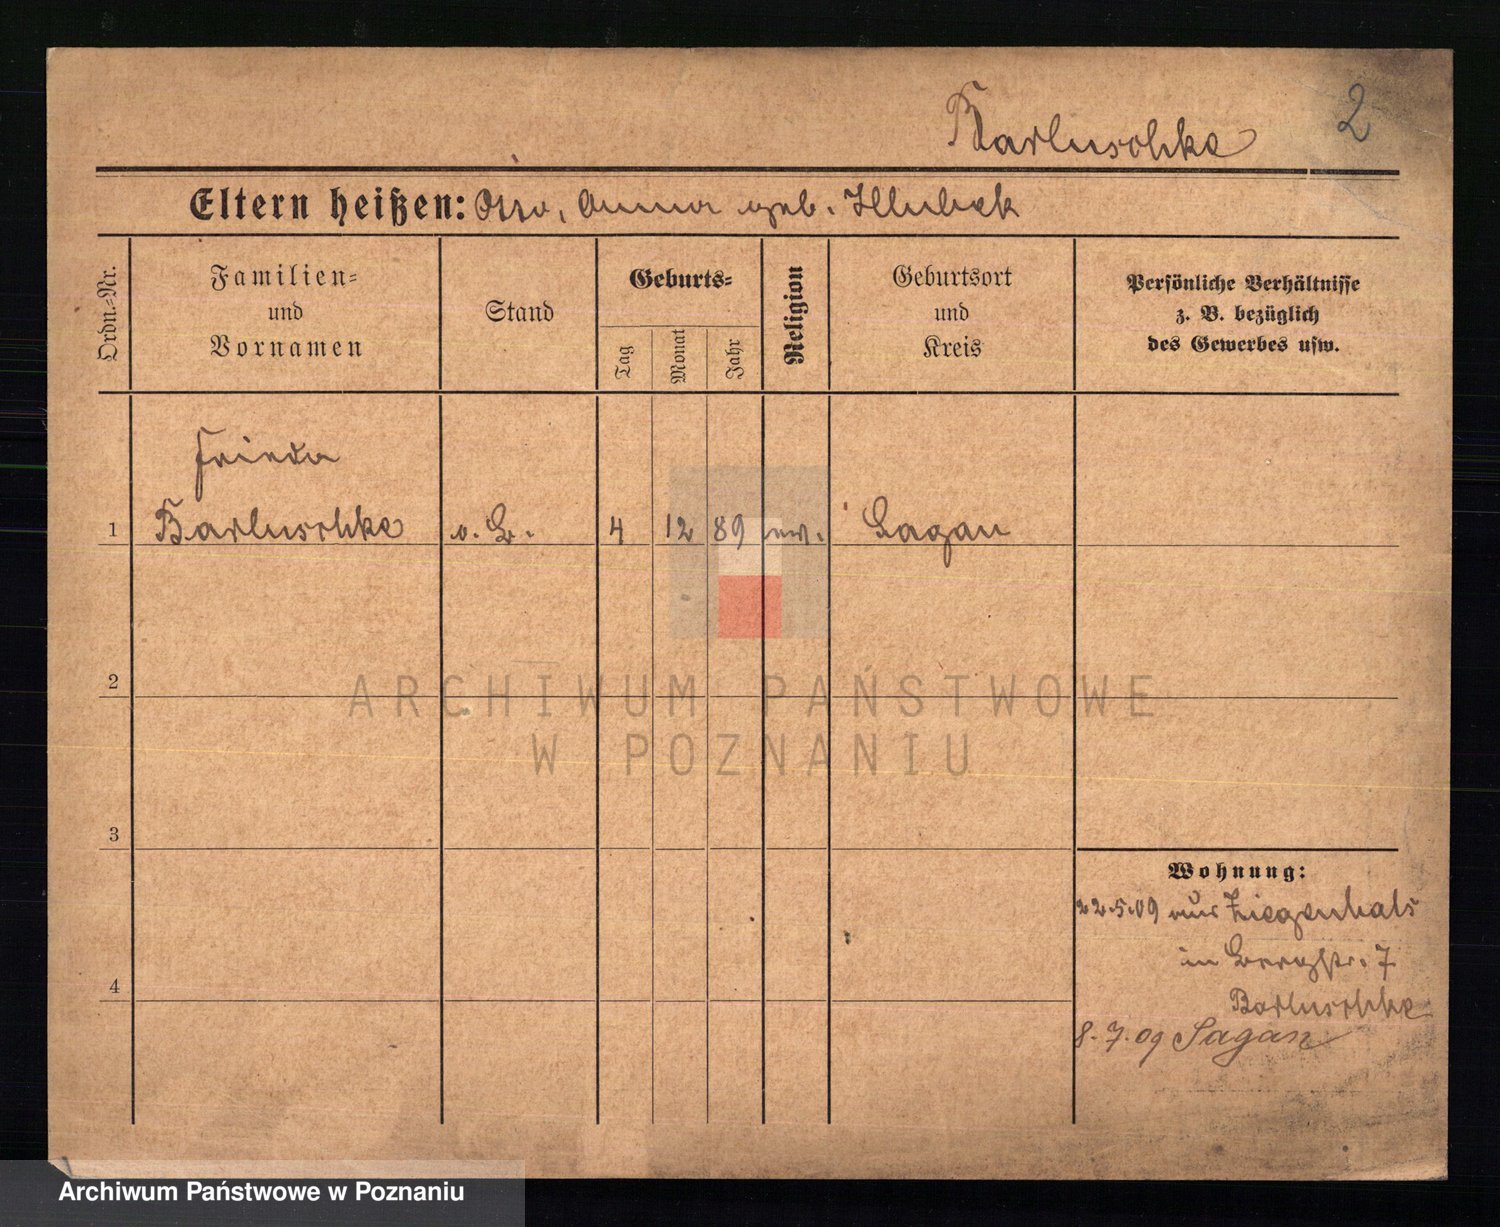 2
Barluschke
Eltern heißen: Otto, Anna geb. Hlubek
Ordn.-Nr.
Familien-
und
Vornamen
Stand
Geburts-
Tag
Monat
Jahr
Religion
Geburtsort
und
Kreis
Persönliche Verhältnisse
z. B. bezüglich
des Gewerbes usw.
Frieda
1 Barluschke o. B. 4 12 89 ev. Sagan
2
ARCHIWUM PAŃSTWOWE
W POZNANIU
3
Wohnung:
22.5.09 aus Ziegenhals
in Bergstr. 7
4
Barluschke
8.7.09 Sagan
Archiwum Państwowe w Poznaniu